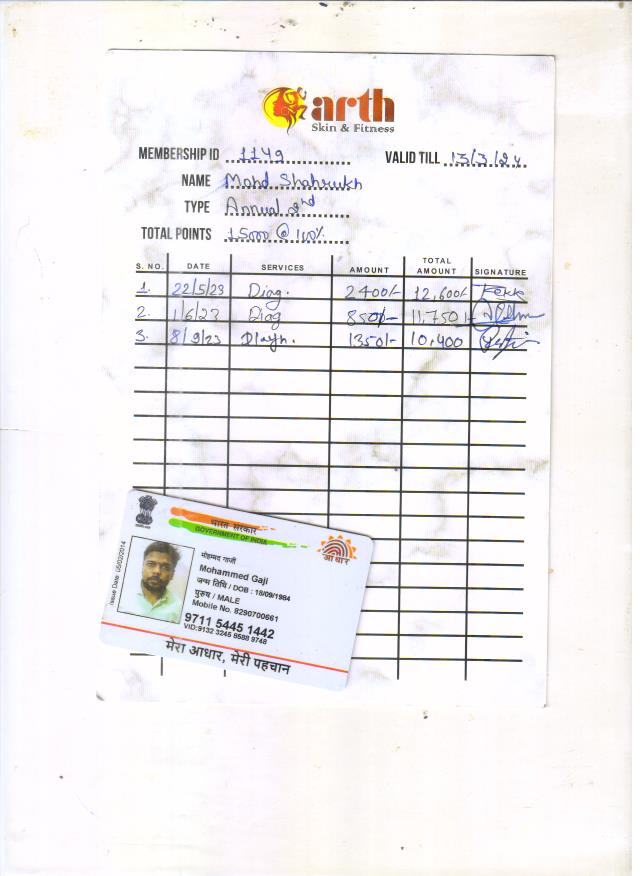 arth
Skin & Fitness
MEMBERSHIP ID 1149 VALID TILL 13/3/24
NAME Mohd Shahrukh
TYPE Annual 2nd
TOTAL POINTS 15000 @ 100%
S. NO. DATE SERVICES AMOUNT TOTAL AMOUNT SIGNATURE
1. 22/5/23 Diag. 2400/- 12,600/-
2. 1/6/23 Diag 850/- 11,750/-
3. 8/9/23 1350/- 10,400
भारत सरकार
GOVERNMENT OF INDIA
आधार
Issue Date: 05/02/2014
मोहम्मद गाजी
Mohammed Gaji
जन्म तिथि / DOB : 18/09/1984
पुरुष / MALE
Mobile No. 8290700661
9711 5445 1442
VID:9132 3245 8588 9748
मेरा आधार, मेरी पहचान